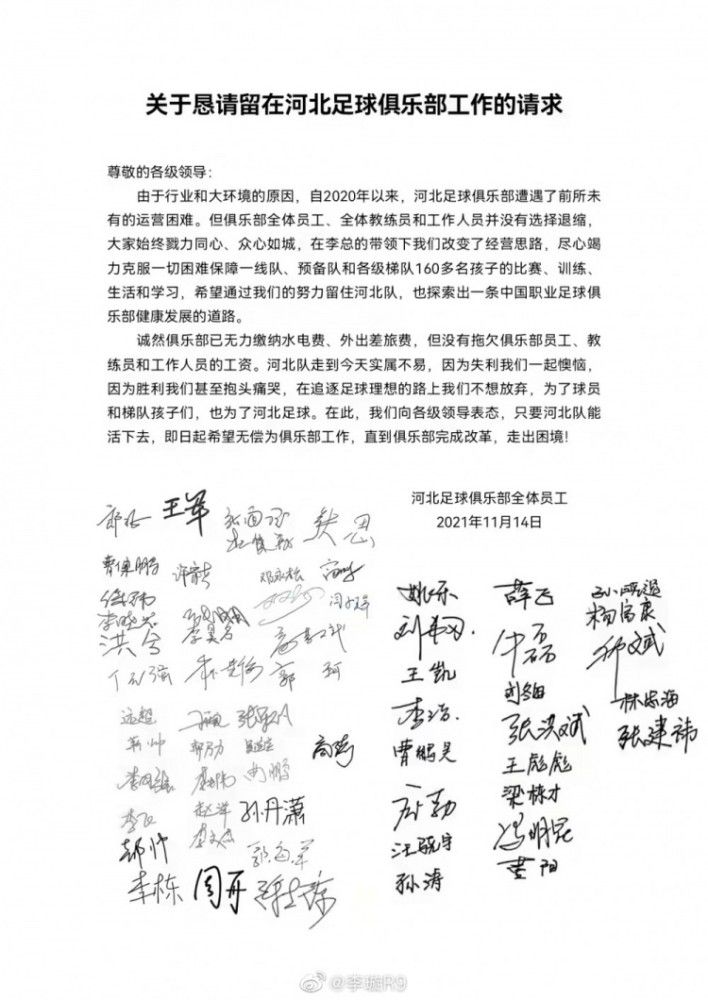 关于恳请留在河北足球俱乐部工作的请求
尊敬的各级领导：
由于行业和大环境的原因，自2020年以来，河北足球俱乐部遭遇了前所未
有的运营困难。但俱乐部全体员工、全体教练员和工作人员并没有选择退缩，
大家始终戮力同心、众心如城，在李总的带领下我们改变了经营思路，尽心竭
力克服一切困难保障一线队、预备队和各级梯队160多名孩子的比赛、训练、
生活和学习，希望通过我们的努力留住河北队，也探索出一条中国职业足球俱
乐部健康发展的道路。
诚然俱乐部已无力缴纳水电费、外出差旅费，但没有拖欠俱乐部员工、教
练员和工作人员的工资。河北队走到今天实属不易，因为失利我们一起懊恼，
因为胜利我们甚至抱头痛哭，在追逐足球理想的路上我们不想放弃，为了球员
和梯队孩子们，也为了河北足球。在此，我们向各级领导表态，只要河北队能
活下去，即日起希望无偿为俱乐部工作，直到俱乐部完成改革，走出困境！
河北足球俱乐部全体员工
2021年11月14日
王军
姚乐
薛飞
杨富康
王凯
林志海
李浩
张洪斌
张建祎
曹鹏昊
王彪彪
高磊
梁栋才
孙丹潇
汪骁宇
冯明昆
孙涛
黄阳
郝帅
李栋
周开
@李璇R9